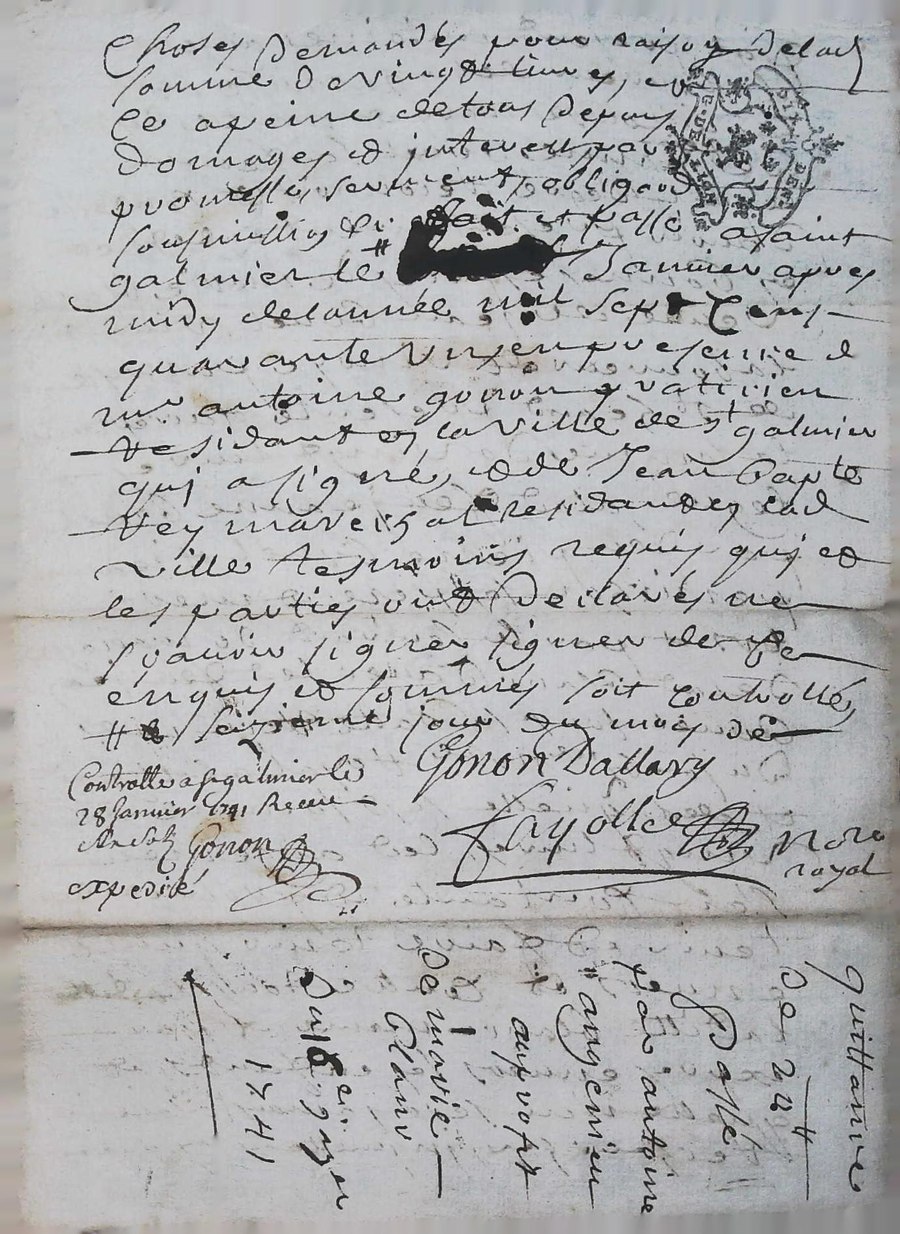 Choses demandés pour raison de lad
somme de vingt livres, et
Ce a peine de tous depens
domages et interests par
promesse, serment, obligaon
soubmission &c fait et passé a saint
galmier le # Janvier apres
midy de lannée mil sept Cens
quarante Un en presence de
mr antoine gonon praticien
Residant en la ville de st galmier
qui a signé, et de Jean bapte
Rey marechal residant en lad
ville tesmoins requis qui et
les parties ont declarés ne
sçavoir signer signer de Ce
enquis et sommés soit controllé,
# seizieme jour du mois de
Gonon Dallary
Controllé a st galmier le
28 Janvier 1741 Receu
Gonon
expedié
fayolle nore
royal
quittance
de 24 #
Passé
par antoine
angenieu
au proft
de marie
Clano
Du 16e janer
1741